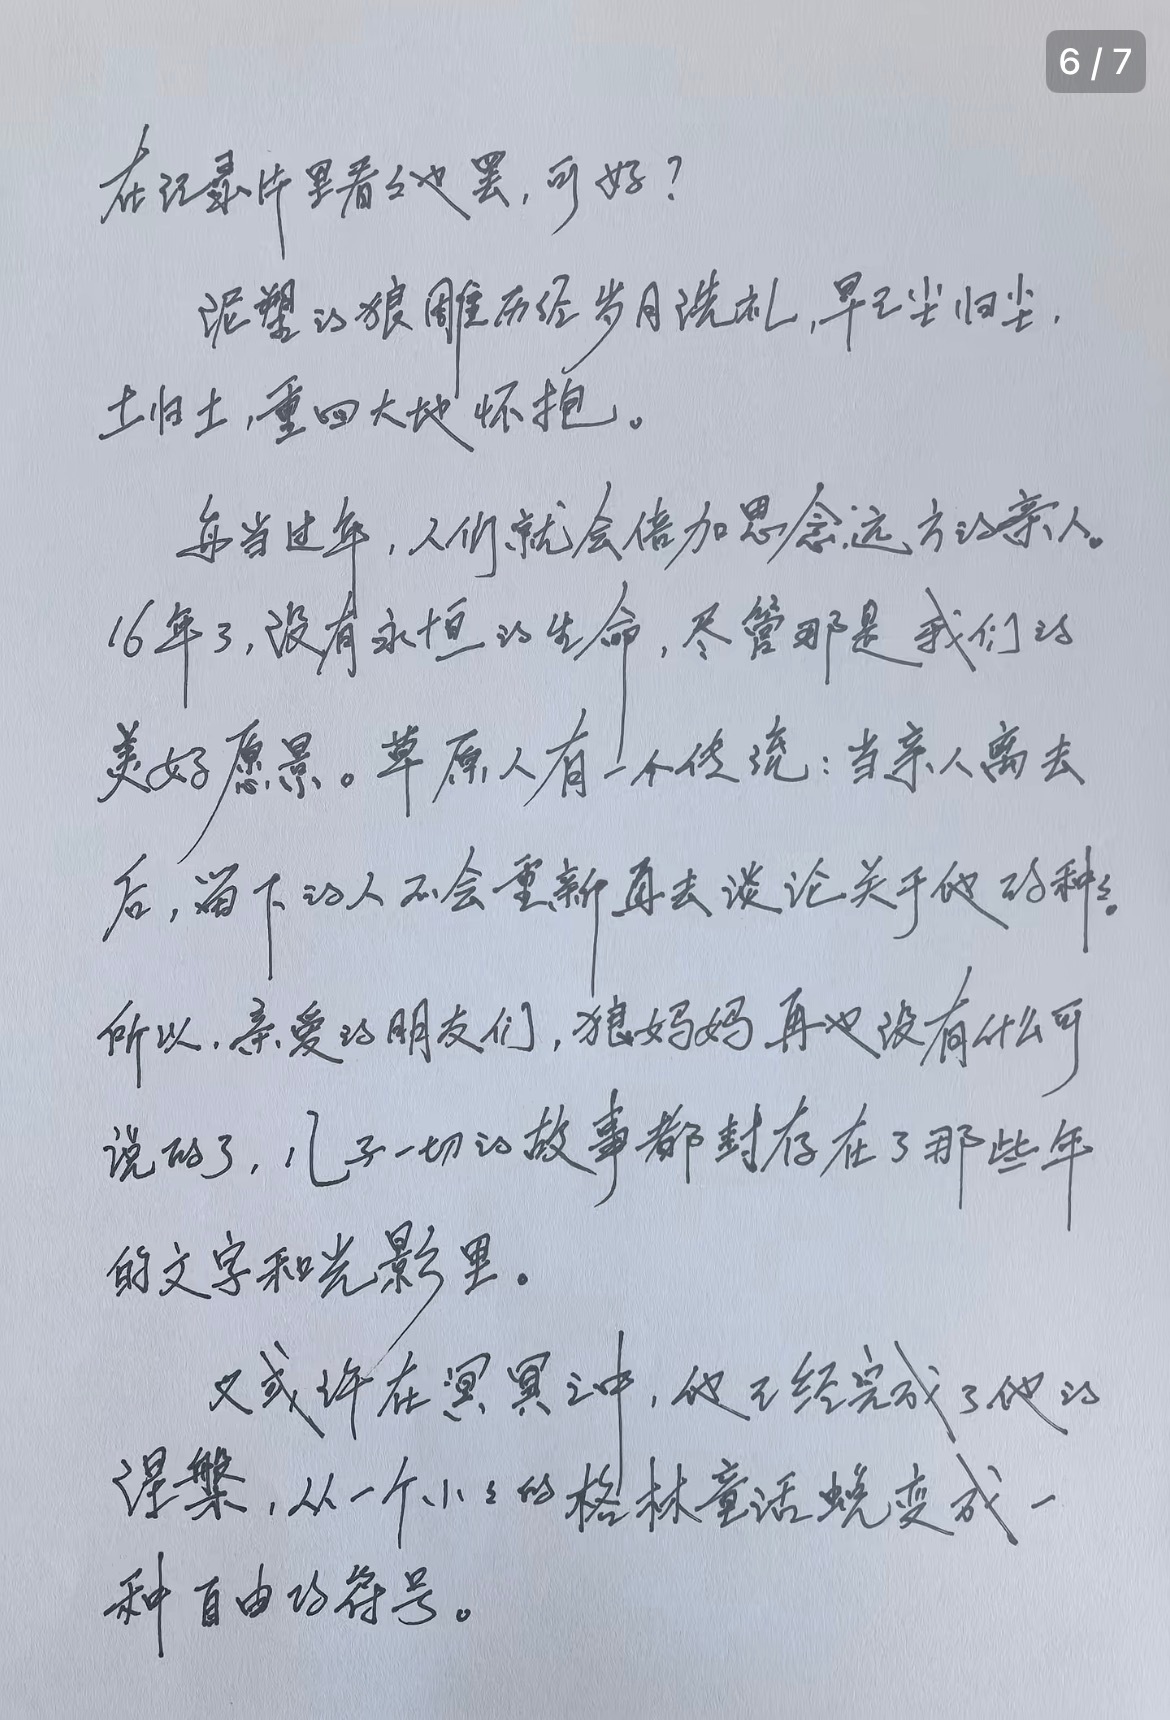 6/7
在记录片里看看他罢,可好?
泥塑的狼雕历经岁月洗礼,早已尘归尘,
土归土,重回大地怀抱。
每当过年,人们就会倍加思念远方的亲人。
16年了,没有永恒的生命,尽管那是我们的
美好愿景。草原人有一个传统:当亲人离去
后,留下的人不会重新再去谈论关于他的种种。
所以,亲爱的朋友们,狼妈妈再也没有什么可
说的了,儿子一切的故事都封存在了那些年
的文字和光影里。
又或许在冥冥之中,他已经完成了他的
涅槃,从一个小小的格林童话蜕变成一
种自由的符号。